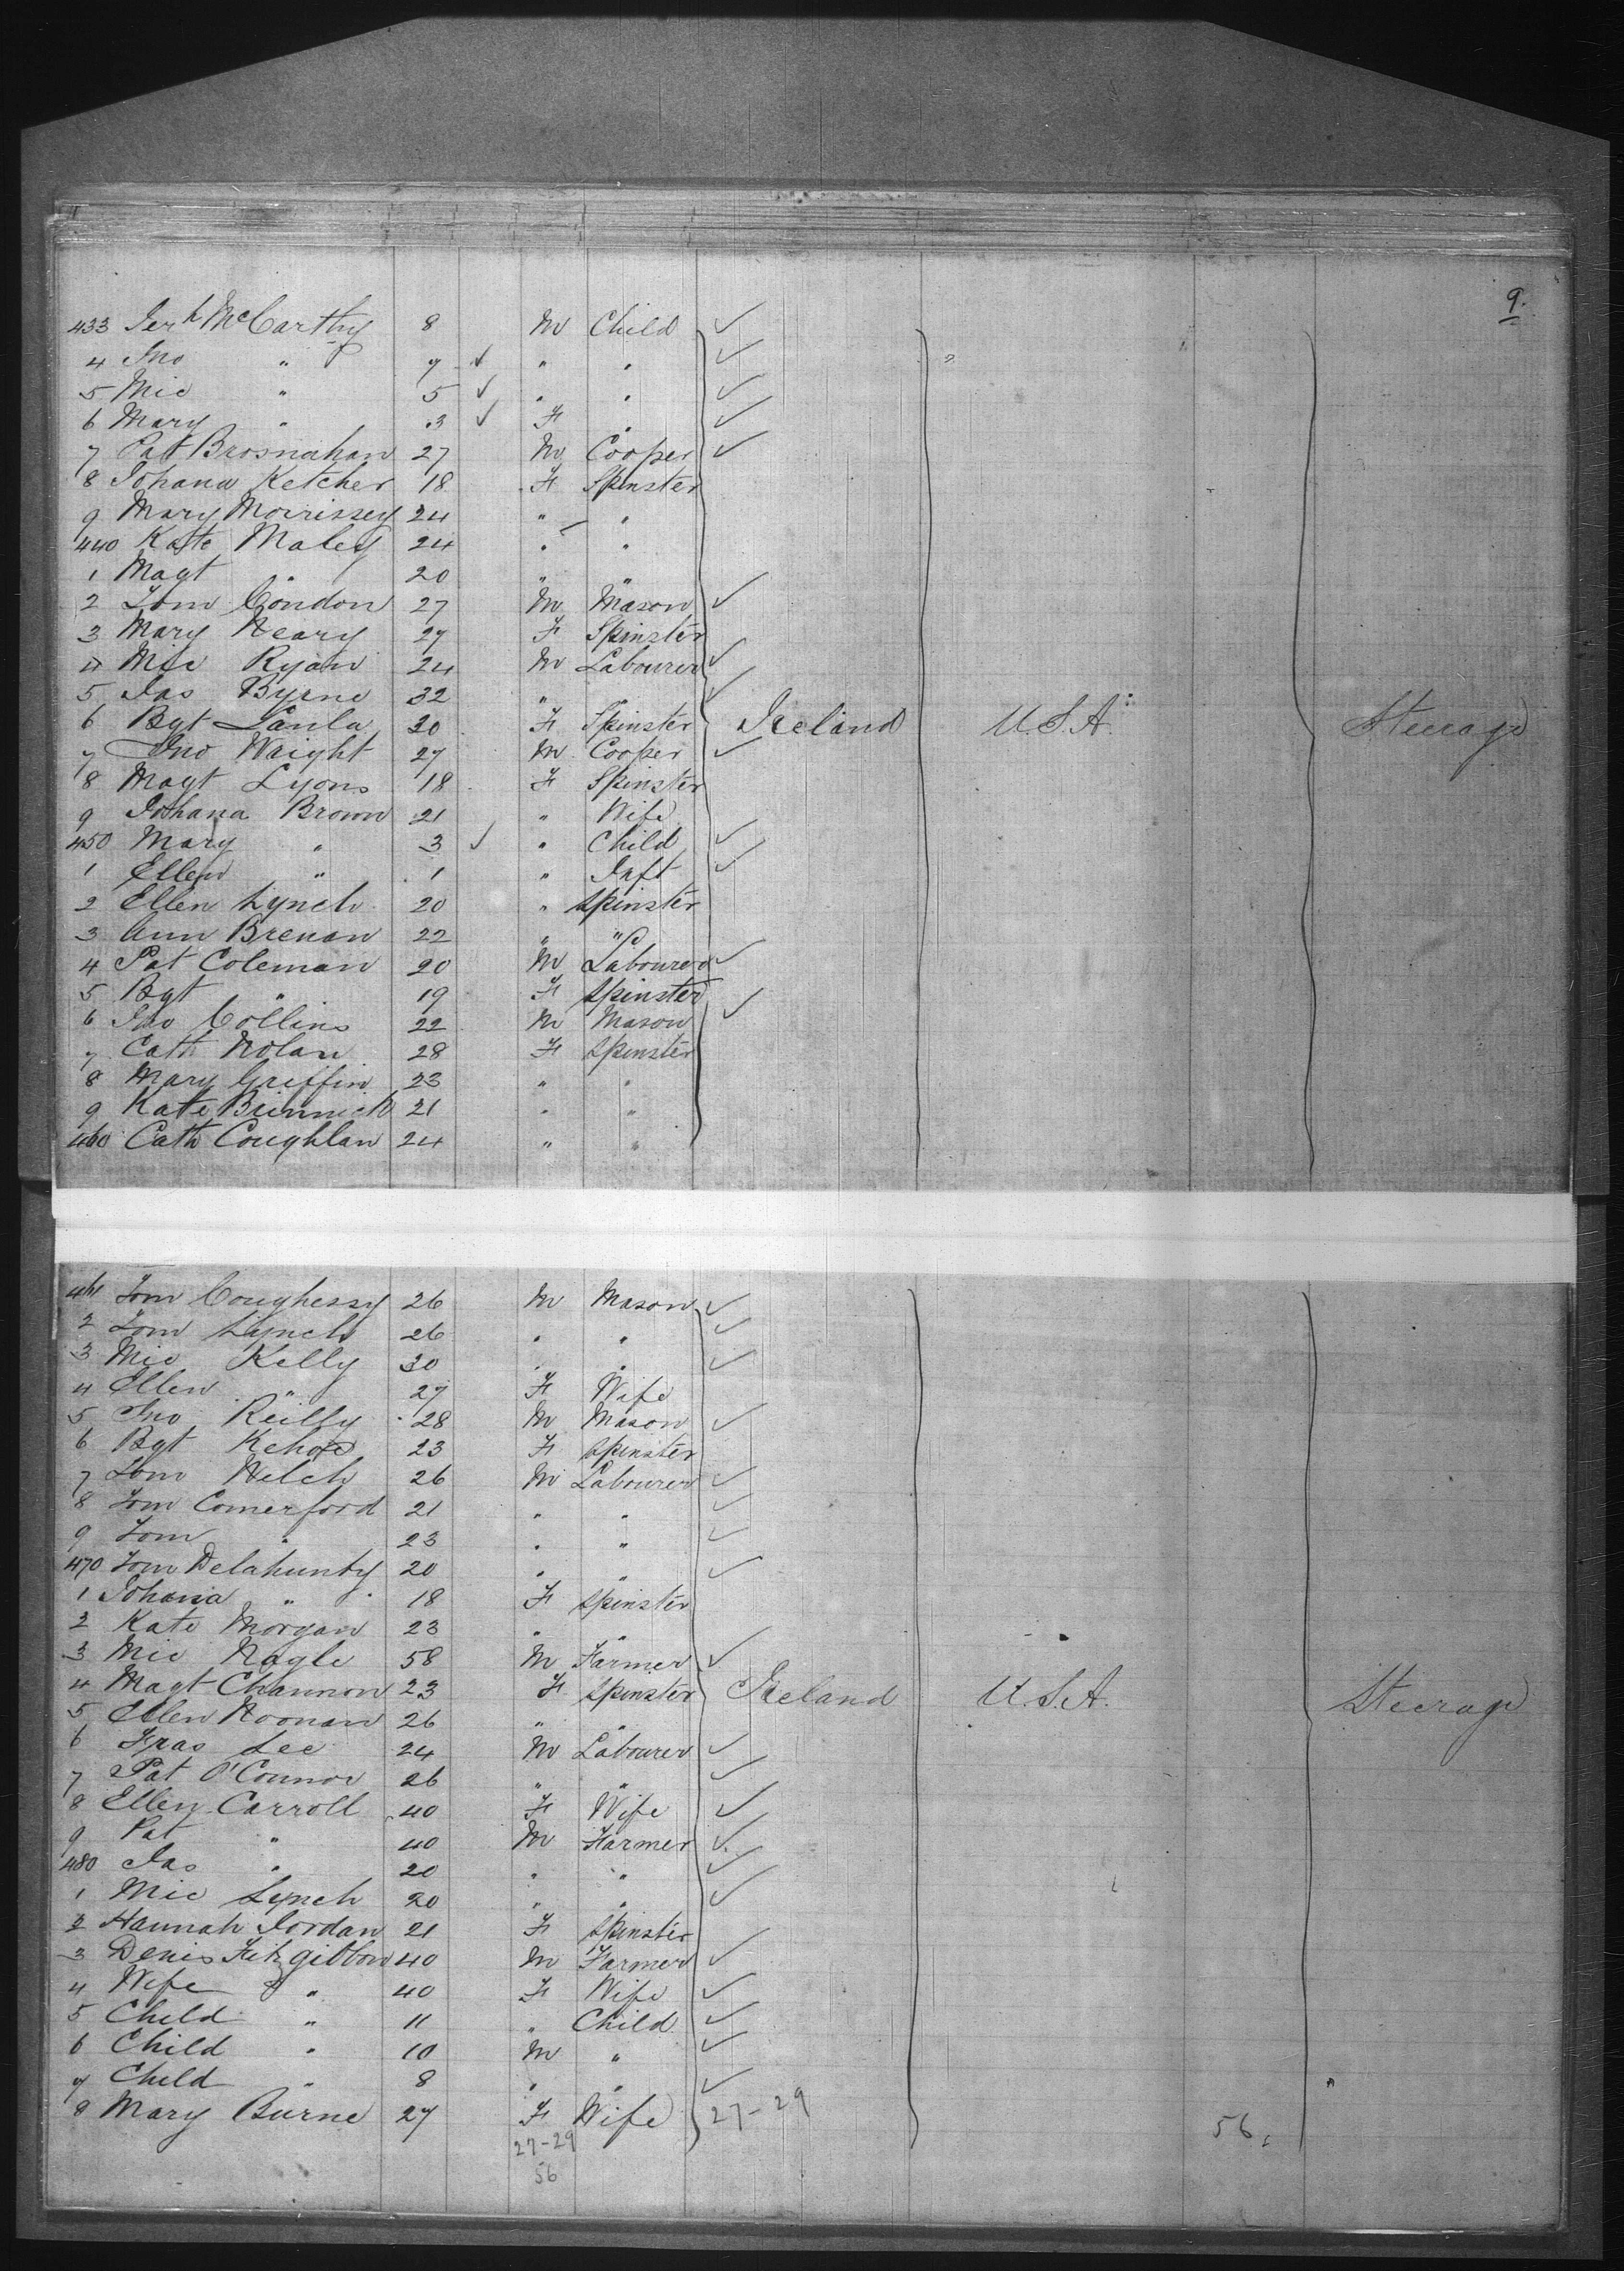 9.
433 Jerh McCarthy 8 M Child ✓
4 Jno " 7 ✓ " " ✓
5 Mic " 5 ✓ " " ✓
6 Mary " 3 ✓ F " ✓
7 Pat Brosnahan 27 M Cooper ✓
8 Johana Ketcher 18 F Spinster
9 Mary Morrissey 24 " "
440 Kate Maley 24 " "
1 Magt " 20 " "
2 Tom Condon 27 M Mason ✓
3 Mary Neary 27 F Spinster
4 Mic Ryan 24 M Labourer ✓
5 Jas Byrne 32 " ✓
6 Bgt Lanla 30 F Spinster Ireland U.S.A. Steerage
7 Jno Waight 27 M Cooper ✓
8 Magt Lyons 18 F Spinster
9 Johana Brown 21 " Wife
450 Mary " 3 ✓ " Child ✓
1 Ellen " 1 " Inft ✓
2 Ellen Lynch 20 " Spinster
3 Ann Brenan 22 " "
4 Pat Coleman 20 M Labourer ✓
5 Bgt " 19 F Spinster
6 Jno Collins 22 M Mason ✓
7 Cath Nolan 28 F Spinster
8 Mary Griffin 23 " "
9 Kate Brinnick 21 " "
460 Cath Coughlan 24 " "
461 Tom Coughessy 26 M Mason ✓
2 Tom Lynch 26 " " ✓
3 Mic Kelly 30 " " ✓
4 Ellen " 27 F Wife
5 Jno Reilly 28 M Mason ✓
6 Bgt Kehoe 23 F Spinster
7 Tom Welch 26 M Labourer ✓
8 Tom Comerford 21 " " ✓
9 Tom " 23 " " ✓
470 Tom Delahunty 20 " " ✓
1 Johana " 18 F Spinster
2 Kate Morgan 23 " "
3 Mic Nagle 58 M Farmer ✓
4 Magt Channon 23 F Spinster Ireland U.S.A. Steerage
5 Ellen Noonan 26 " "
6 Fras Lee 24 M Labourer ✓
7 Pat O'Connor 26 " " ✓
8 Ellen Carroll 40 F Wife ✓
9 Pat " 40 M Farmer ✓
480 Jas " 20 " " ✓
1 Mic Lynch 20 " " ✓
2 Hannah Jordan 21 F Spinster
3 Denis Fitzgibbon 40 M Farmer ✓
4 Wife " 40 F Wife ✓
5 Child " 11 " Child ✓
6 Child " 10 M " ✓
7 Child " 8 " " ✓
8 Mary Burne 27 F Wife 27-29
27-29 56
56